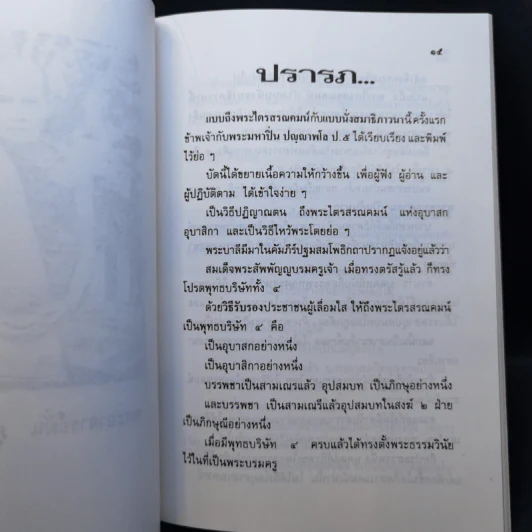 ๑๕
ปรารภ...
แบบถึงพระไตรสรณคมน์กับแบบนั่งสมาธิภาวนานี้ ครั้งแรก
ข้าพเจ้ากับพระมหาปิ่น ปญฺญาพโล ป.๕ ได้เรียบเรียง และพิมพ์
ไว้ย่อ ๆ
บัดนี้ได้ขยายเนื้อความให้กว้างขึ้น เพื่อผู้ฟัง ผู้อ่าน และ
ผู้ปฏิบัติตาม ได้เข้าใจง่าย ๆ
เป็นวิธีปฏิญาณตน ถึงพระไตรสรณคมน์ แห่งอุบาสก
อุบาสิกา และเป็นวิธีไหว้พระโดยย่อ ๆ
พระบาลีมีมาในคัมภีร์ปฐมสมโพธิกถาปรากฏแจ้งอยู่แล้วว่า
สมเด็จพระสัพพัญญูบรมครูเจ้า เมื่อทรงตรัสรู้แล้ว ก็ทรง
โปรดพุทธบริษัททั้ง ๔
ด้วยวิธีรับรองประชาชนผู้เลื่อมใส ให้ถึงพระไตรสรณคมน์
เป็นพุทธบริษัท ๔ คือ
เป็นอุบาสกอย่างหนึ่ง
เป็นอุบาสิกาอย่างหนึ่ง
บรรพชาเป็นสามเณรแล้ว อุปสมบท เป็นภิกษุอย่างหนึ่ง
และบรรพชา เป็นสามเณรีแล้วอุปสมบทในสงฆ์ ๒ ฝ่าย
เป็นภิกษุณีอย่างหนึ่ง
เมื่อมีพุทธบริษัท ๔ ครบแล้วได้ทรงตั้งพระธรรมวินัย
ไว้ในที่เป็นพระบรมครู